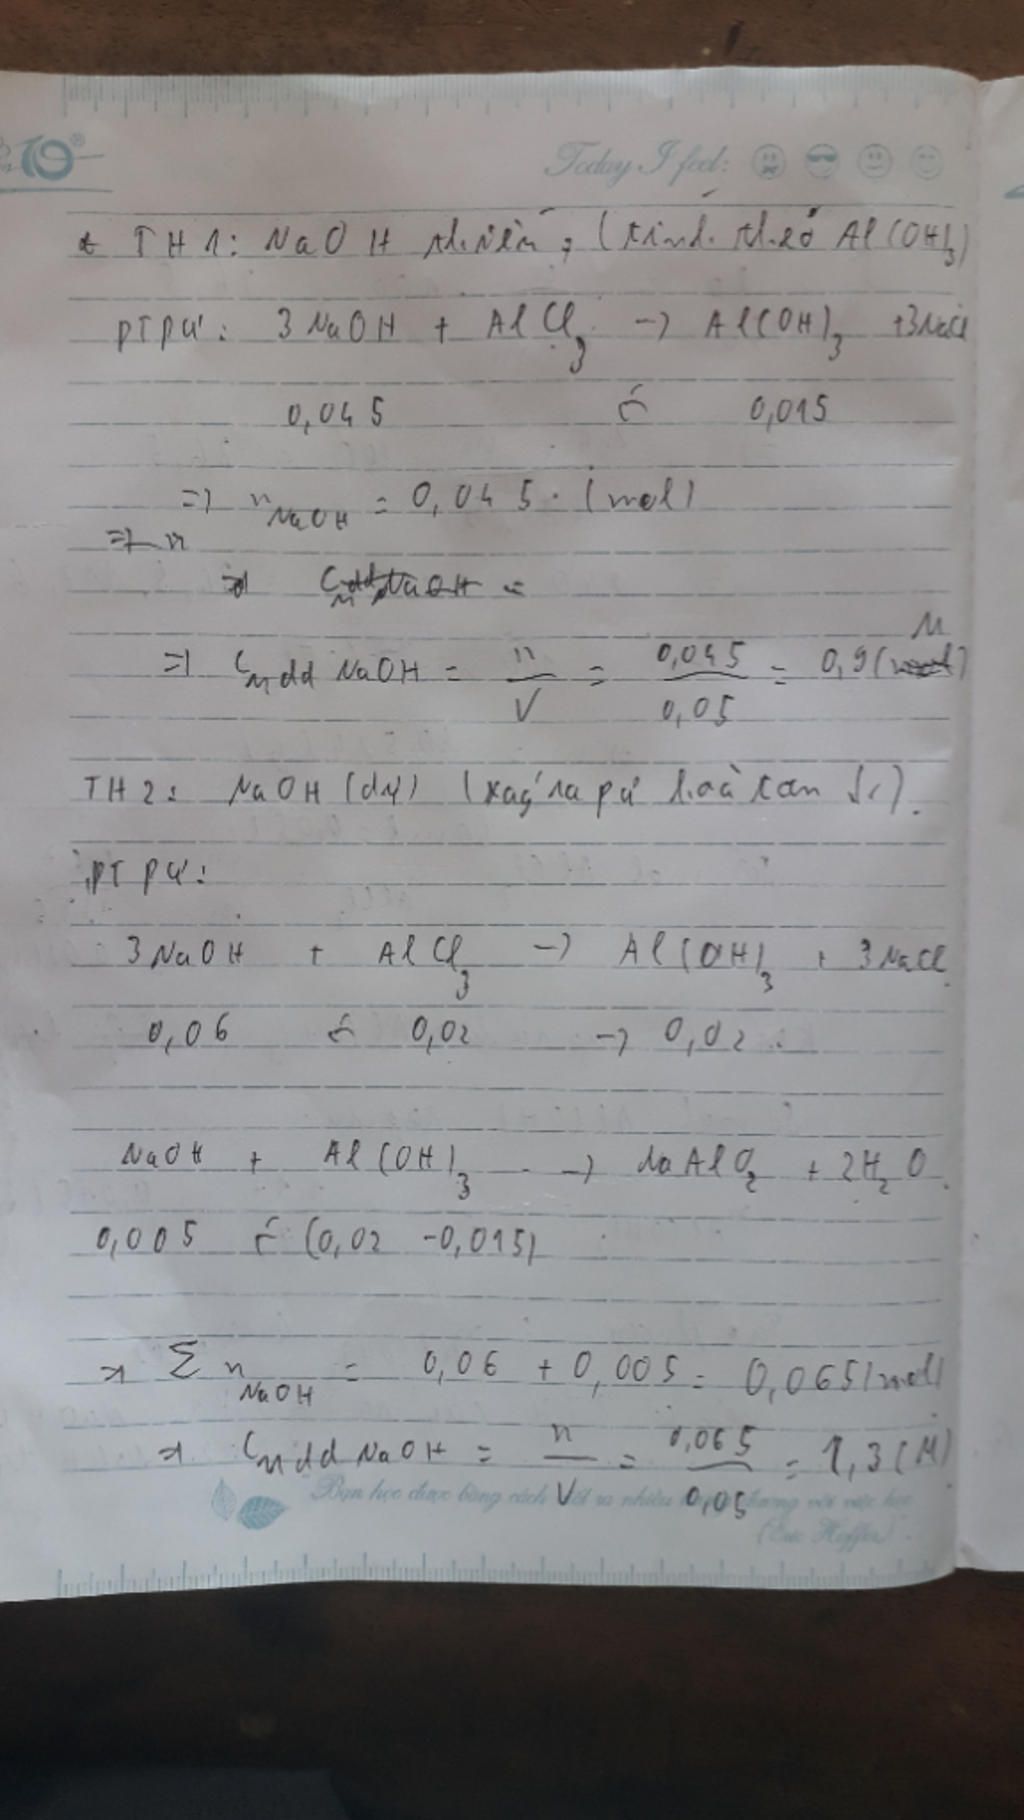 Today I feel:
* TH1: NaOH thiếu, (tính theo Al(OH)3)
ptpứ: 3NaOH + AlCl3 -> Al(OH)3 + 3NaCl
0,045 <- 0,015
=> nNaOH = 0,045 (mol)
=> n
=> CM dd NaOH =
M
=> CM dd NaOH = n/V = 0,045/0,05 = 0,9 (mol)
TH2: NaOH (dư) (xảy ra pứ hoà tan ↓).
ptpứ:
3NaOH + AlCl3 -> Al(OH)3 + 3NaCl
0,06 <- 0,02 -> 0,02
NaOH + Al(OH)3 -> NaAlO2 + 2H2O.
0,005 <- (0,02 - 0,015)
=> Σ nNaOH = 0,06 + 0,005 = 0,065 (mol)
=> CM dd NaOH = n/V = 0,065/0,05 = 1,3 (M)
Bạn học được bằng cách
(Eric Hoffer)